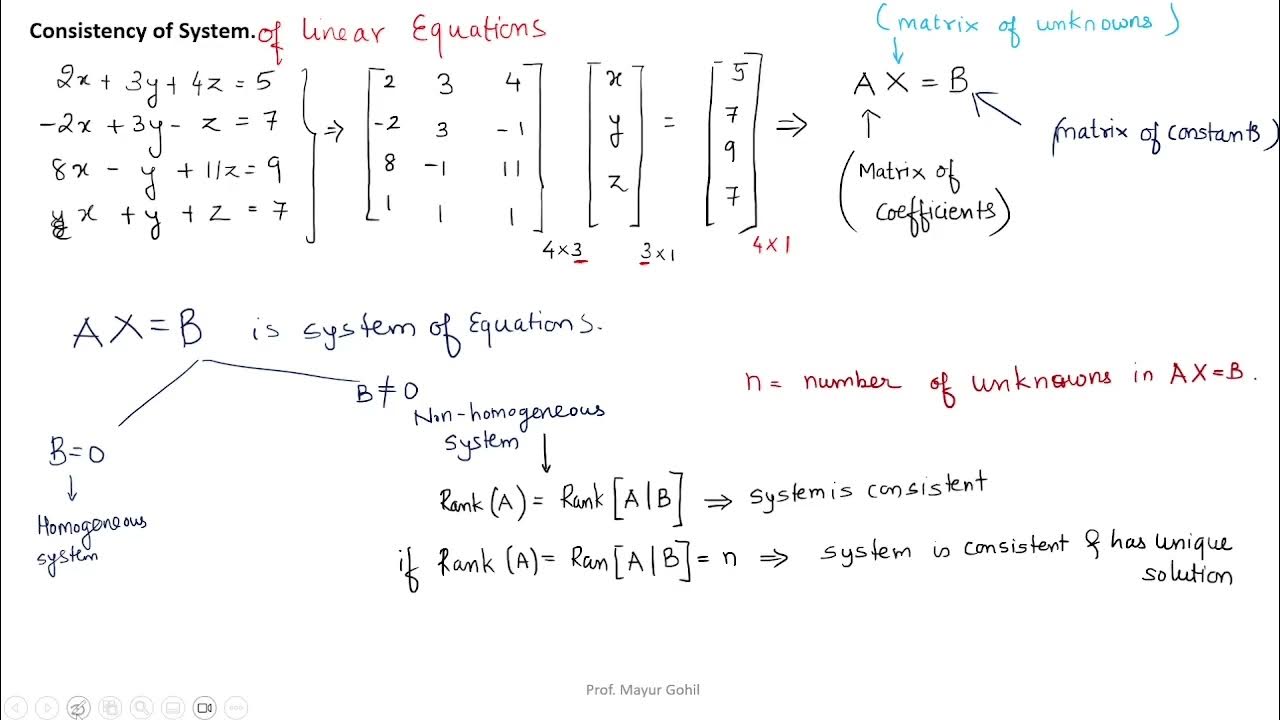 Consistency of System. of linear Equations
(matrix of unknowns)
2x + 3y + 4z = 5
-2x + 3y - z = 7
8x - y + 11z = 9
x + y + z = 7
⇒ [2 3 4
-2 3 -1
8 -1 11
1 1 1] 4×3
[x
y
z] 3×1
= [5
7
9
7] 4×1
⇒ AX = B
(matrix of constants)
(Matrix of
coefficients)
AX = B is system of Equations.
B ≠ 0
n = number of unknowns in AX = B.
Non-homogeneous
system
B = 0
Homogeneous
system
Rank (A) = Rank [A | B] ⇒ system is consistent
if Rank (A) = Ran [A | B] = n ⇒ system is consistent & has unique
solution
Prof. Mayur Gohil